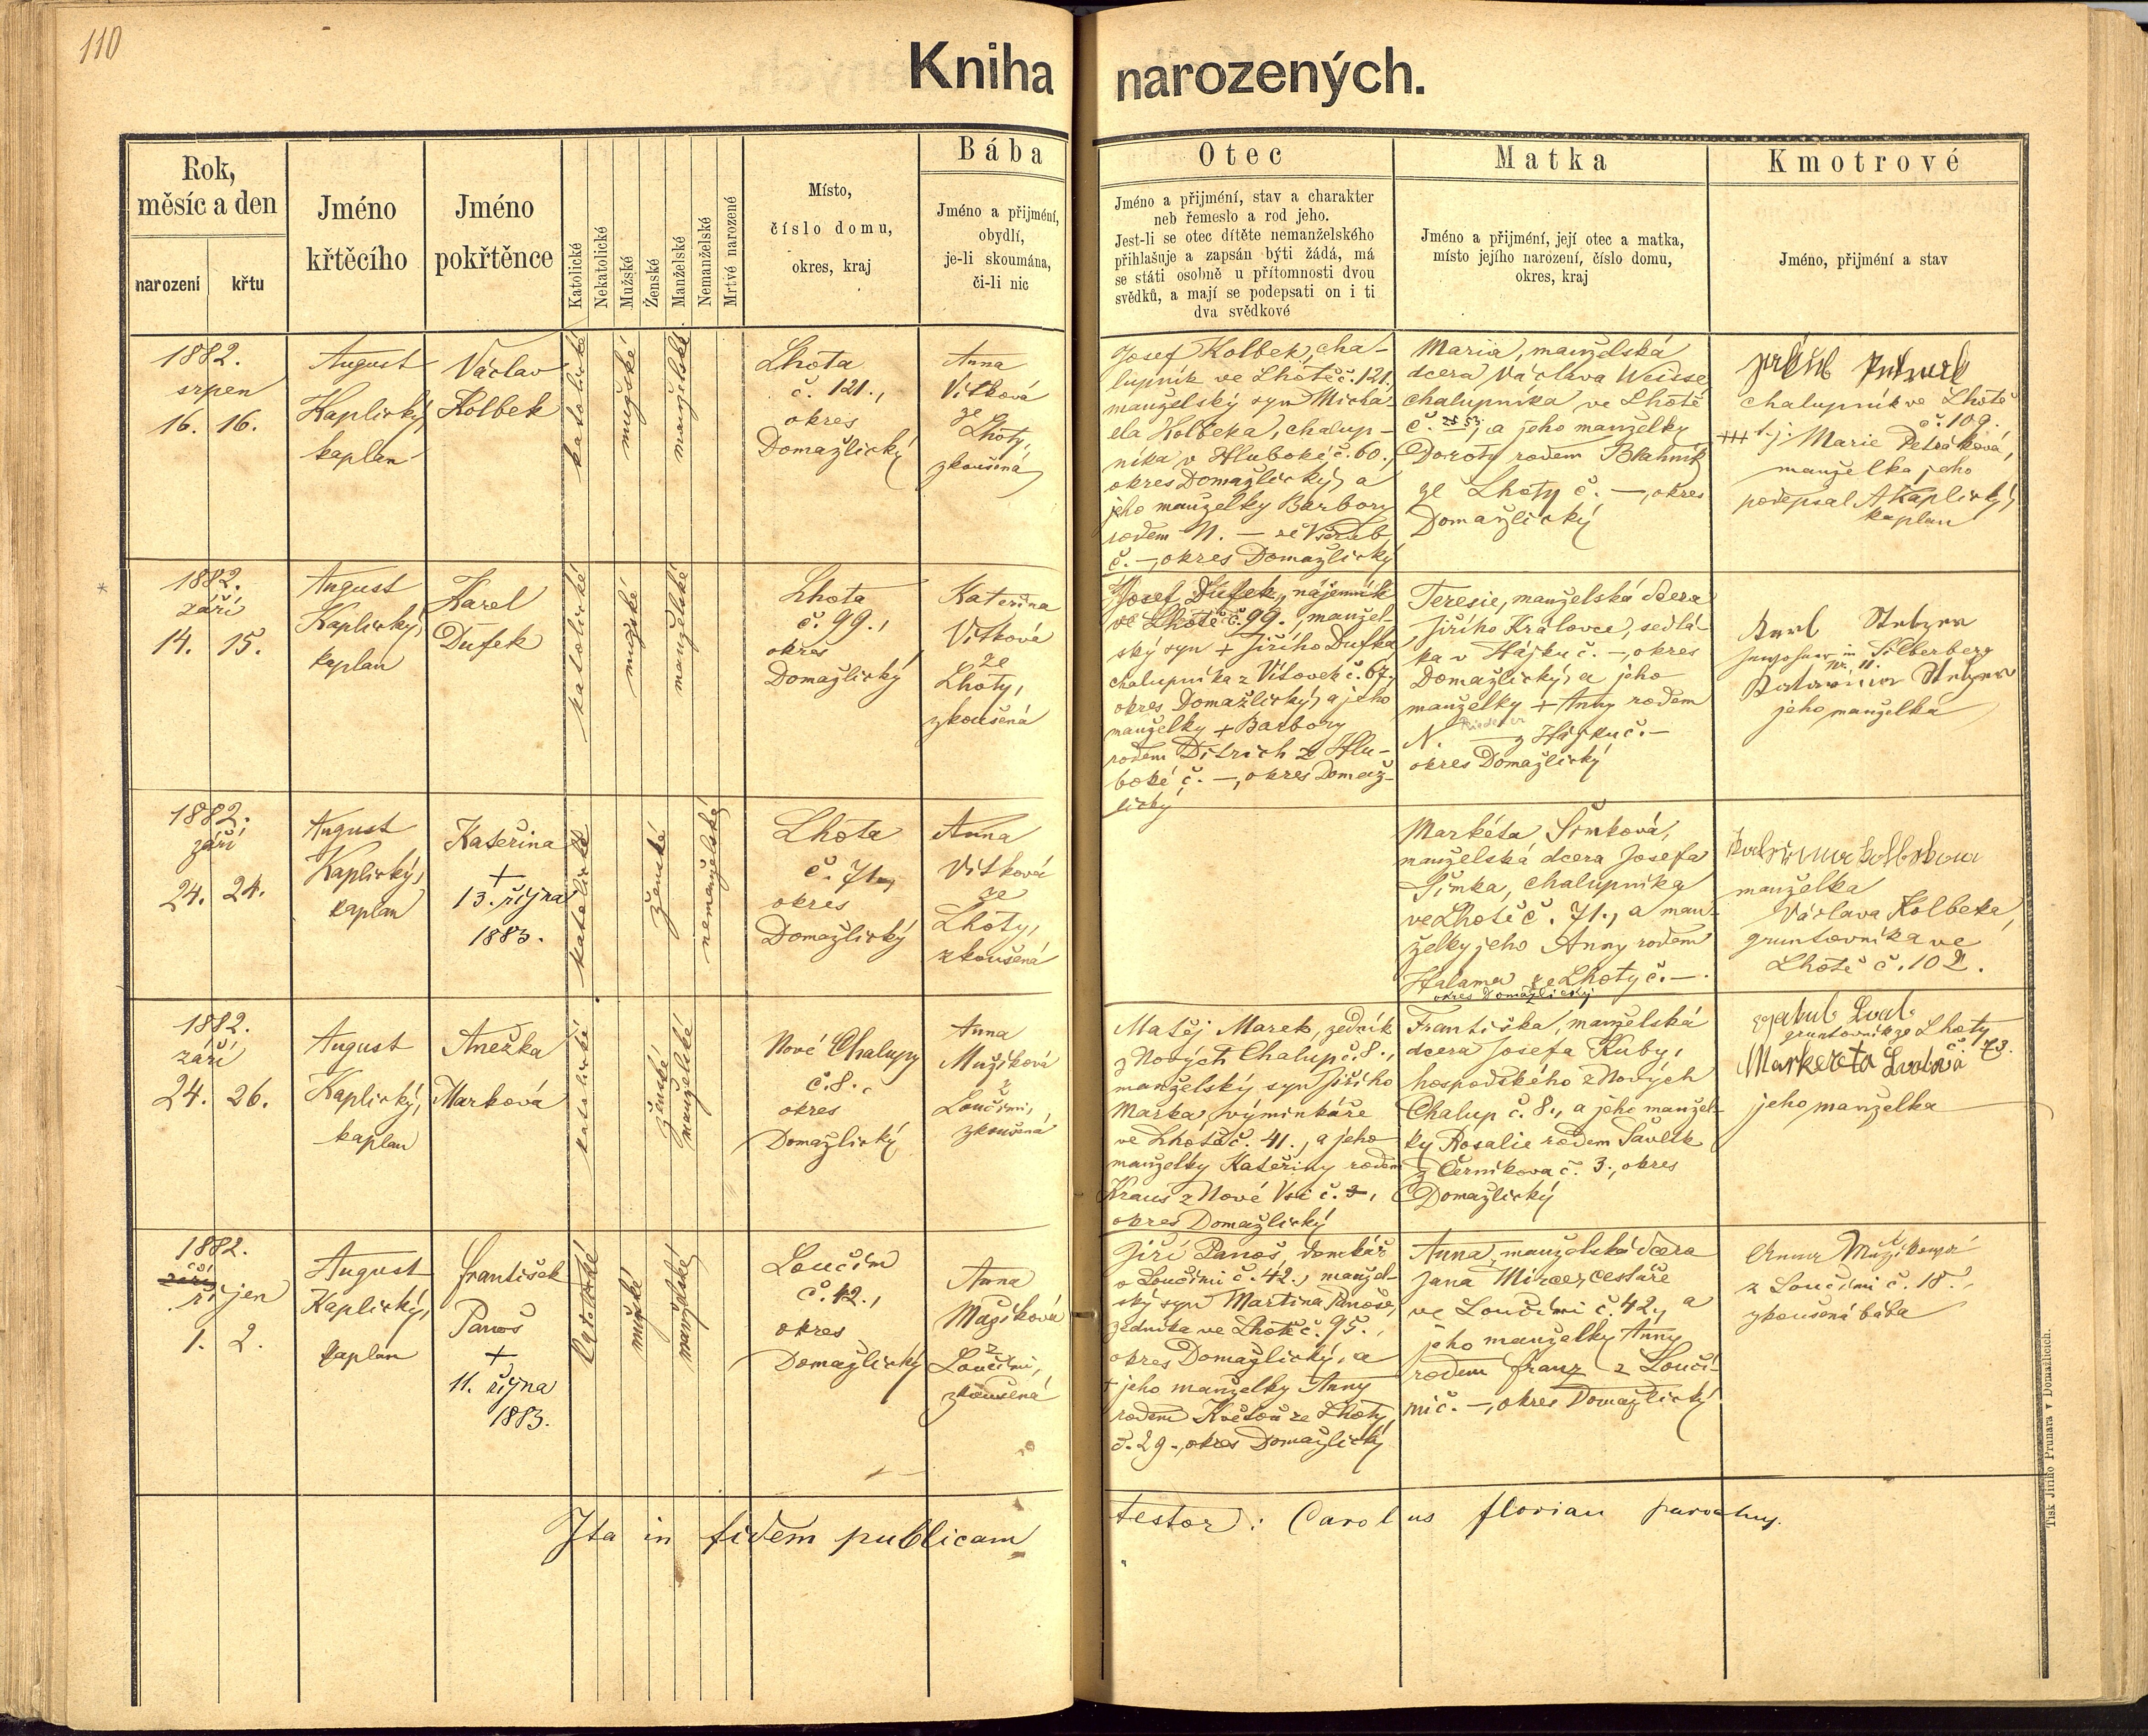 110
Kniha narozených.
Rok,
měsíc a den
narození
křtu
Jméno
křtěcího
Jméno
pokřtěnce
Katolické
Nekatolické
Mužské
Ženské
Manželské
Nemanželské
Mrtvé narozené
Místo,
číslo domu,
okres, kraj
Bába
Jméno a přijmení,
obydlí,
je-li skoumána,
či-li nic
Otec
Jméno a přijmení, stav a charakter
neb řemeslo a rod jeho.
Jest-li se otec dítěte nemanželského
přihlašuje a zapsán býti žádá, má
se státi osobně u přítomnosti dvou
svědků, a mají se podepsati on i ti
dva svědkové
Matka
Jméno a přijmení, její otec a matka,
místo jejího narození, číslo domu,
okres, kraj
Kmotrové
Jméno, přijmení a stav
1882.
srpen
16. 16.
August
Kaplický,
kaplan
Václav
Kolbek
katolické
mužské
manželské
Lhota
č. 121.,
okres
Domažlický
Anna
Vítková
ze
Lhoty,
zkoušená
Josef Kolbek, cha-
lupník ve Lhotě č. 121.,
manželský syn Micha-
ela Kolbeka, chalup-
níka v Hluboké č. 60.,
okres Domažlický, a
jeho manželky Barbory
rodem N. — ze Všerub
č. —, okres Domažlický
Maria, manželská
dcera Václava Weisse,
chalupníka ve Lhotě
č. 53, a jeho manželky
Doroty rodem Blahnik
ze Lhoty č. —, okres
Domažlický
chalupník ve Lhotě
č. 109.
+++ tj. Marie Petráková,
manželka jeho
podepsal A Kaplický,
kaplan
1882.
září
14. 15.
August
Kaplický,
kaplan
Karel
Dufek
katolické
mužské
manželské
Lhota
č. 99.,
okres
Domažlický
Kateřina
Vítková
ze
Lhoty,
zkoušená
Josef Dufek, nájemník
ve Lhotě č. 99., manžel-
ský syn + Jiřího Dufka
chalupníka z Vítovek č. 67.,
okres Domažlický, a jeho
manželky + Barbory
rodem Ditrich z Hlu-
boké č. —, okres Domaž-
lický
Teresie, manželská dcera
Jiřího Královce, sedlá-
ka v Hájku č. —, okres
Domažlický, a jeho
manželky + Anny rodem
N. — z Hájku č. —
okres Domažlický
Karl
in Silberberg
Nr. 11.
jeho manželka
1882.
září
24. 24.
August
Kaplický,
kaplan
Kateřina
+
13. října
1883.
katolické
ženské
nemanželské
Lhota
č. 71.,
okres
Domažlický
Anna
Vítková
ze
Lhoty,
zkoušená
Markéta Šimková,
manželská dcera Josefa
Šimka, chalupníka
ve Lhotě č. 71., a man-
želky jeho Anny rodem
Halama ze Lhoty č. —.
okres Domažlický
manželka
Václava Kolbeka,
gruntovníka ve
Lhotě č. 102.
1882.
září
24. 26.
August
Kaplický,
kaplan
Anežka
Marková
katolické
ženské
manželské
Nové Chalupy
č. 8.,
okres
Domažlický
Anna
Mužíková
z
Loučimi,
zkoušená
Matěj Marek, zedník
z Nových Chalup č. 8.,
manželský syn Jiřího
Marka, výminkáře
ve Lhotě č. 41., a jeho
manželky Kateřiny rodem
Kraus z Nové Vsi č. 3,
okres Domažlický
Františka, manželská
dcera Josefa Kuby,
hospodského z Nových
Chalup č. 8., a jeho manžel-
ky Rosalie rodem Pavlík
z Černíkova č. 3., okres
Domažlický
gruntovník ze Lhoty
č. 73.
Markereta
jeho manželka
1882.
září
říjen
1. 2.
August
Kaplický,
kaplan
František
Panoš
+
11. října
1883.
katolické
mužské
manželské
Loučim
č. 42.,
okres
Domažlický
Anna
Mužíková
z
Loučimi,
zkoušená
Jiří Panoš, domkář
v Loučimi č. 42., manžel-
ský syn Martina Panoše,
zedníka ve Lhotě č. 95.,
okres Domažlický, a
+ jeho manželky Anny
rodem Květoň ze Lhoty,
č. 29., okres Domažlický
Anna, manželská dcera
Jana cestáře
ve Loučimi č. 42., a
jeho manželky Anny
rodem Franz z Louči-
mi č. —, okres Domažlický
Anna Mužíková
z Loučimi č. 18.,
zkoušená bába
Ita in fidem publicam testor: Carolus Florian parochus.
Tisk Jiřího Prunara v Domažlicích.